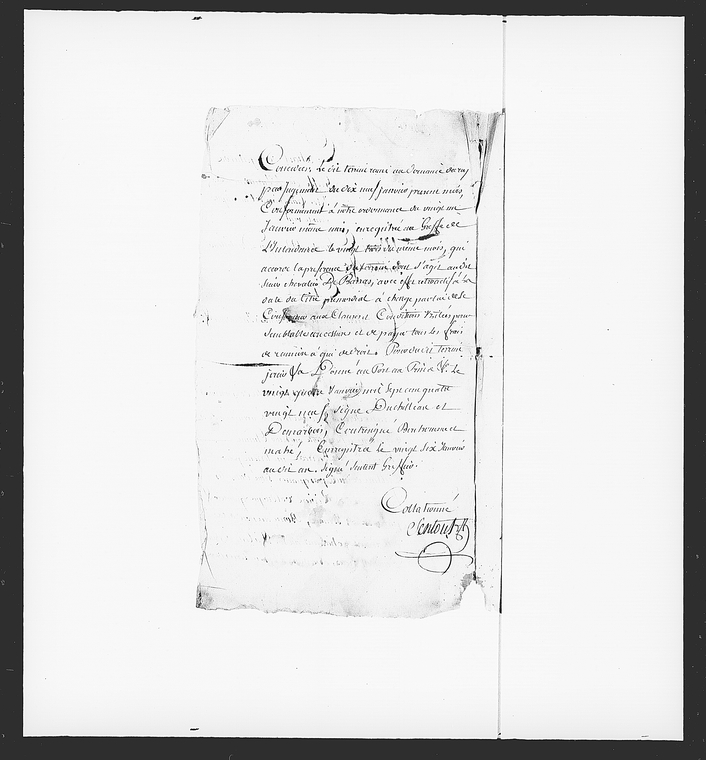 Concédés. Le dit terrein reuni au Domaine du roy
par Jugement du dix neuf janvier présent mois,
Conformément à notre ordonnance du vingt un
Janvier même mois, enregistré au Greffe de
L'Intendance le vingt trois du même mois, qui
accorde la préférence du terrein dont s'agit audit
sieur chevalier De Barras, avec effet retroactif à la
date du titre primordial à charge par lui de se
Conformer aux Clauses et Conditions
semblables concessions et de payer tous les frais
de reunion à qui de droit. Pour du dit terrein
jouir &a Donné au Port au Prince &c Le
vingt quatre Janvier mil sept cent quatre
vingt neuf, signé Duchilleau et
Demarbois, Contresigné Bonhomme et
mahé, Enregistré le vingt six Janvier
audit an. Signé Sentout Greffier.
Collationné
Sentout